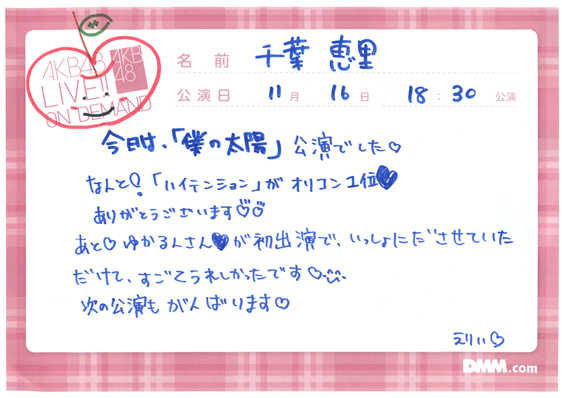 AKB48 LIVE!! ON DEMAND
AKB48
名前 千葉 恵里
公演日 11月 16日 18:30 公演
今日は、「僕の太陽」公演でした♡
なんと!「ハイテンション」がオリコン1位♥
ありがとうございます
あと♡ゆかるんさん♥が初出演で、いっしょにださせていた
だけて、すごくうれしかったです♡
次の公演もがんばります♡
えりい♡
DMM.com